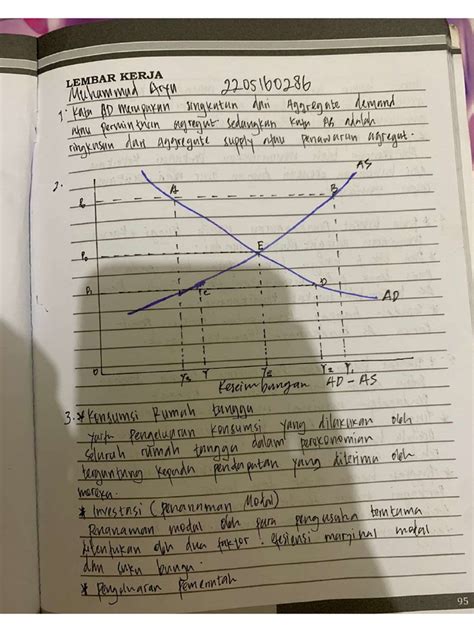 LEMBAR KERJA
Muhammad Arya 2205160286
1. Kata AD merupakan singkatan dari Aggregate demand
atau permintaan agregat sedangkan kata AS adalah
ringkasan dari aggregate supply atau penawaran agregat.
2.
AS
A B
P0 E
P1 C D
AD
0
Y3 Y Y2 Y1
Keseimbangan AD - AS
3. * Konsumsi Rumah tangga
yaitu Pengeluaran konsumsi yang dilakukan oleh
seluruh rumah tangga dalam perekonomian
tergantung kepada pendapatan yang diterima oleh
mereka.
* Investasi (Penanaman Modal)
Penanaman modal oleh para pengusaha terutama
ditentukan oleh dua faktor : efesiensi marginal modal
dan suku bunga.
* Pengeluaran Pemerintah
95